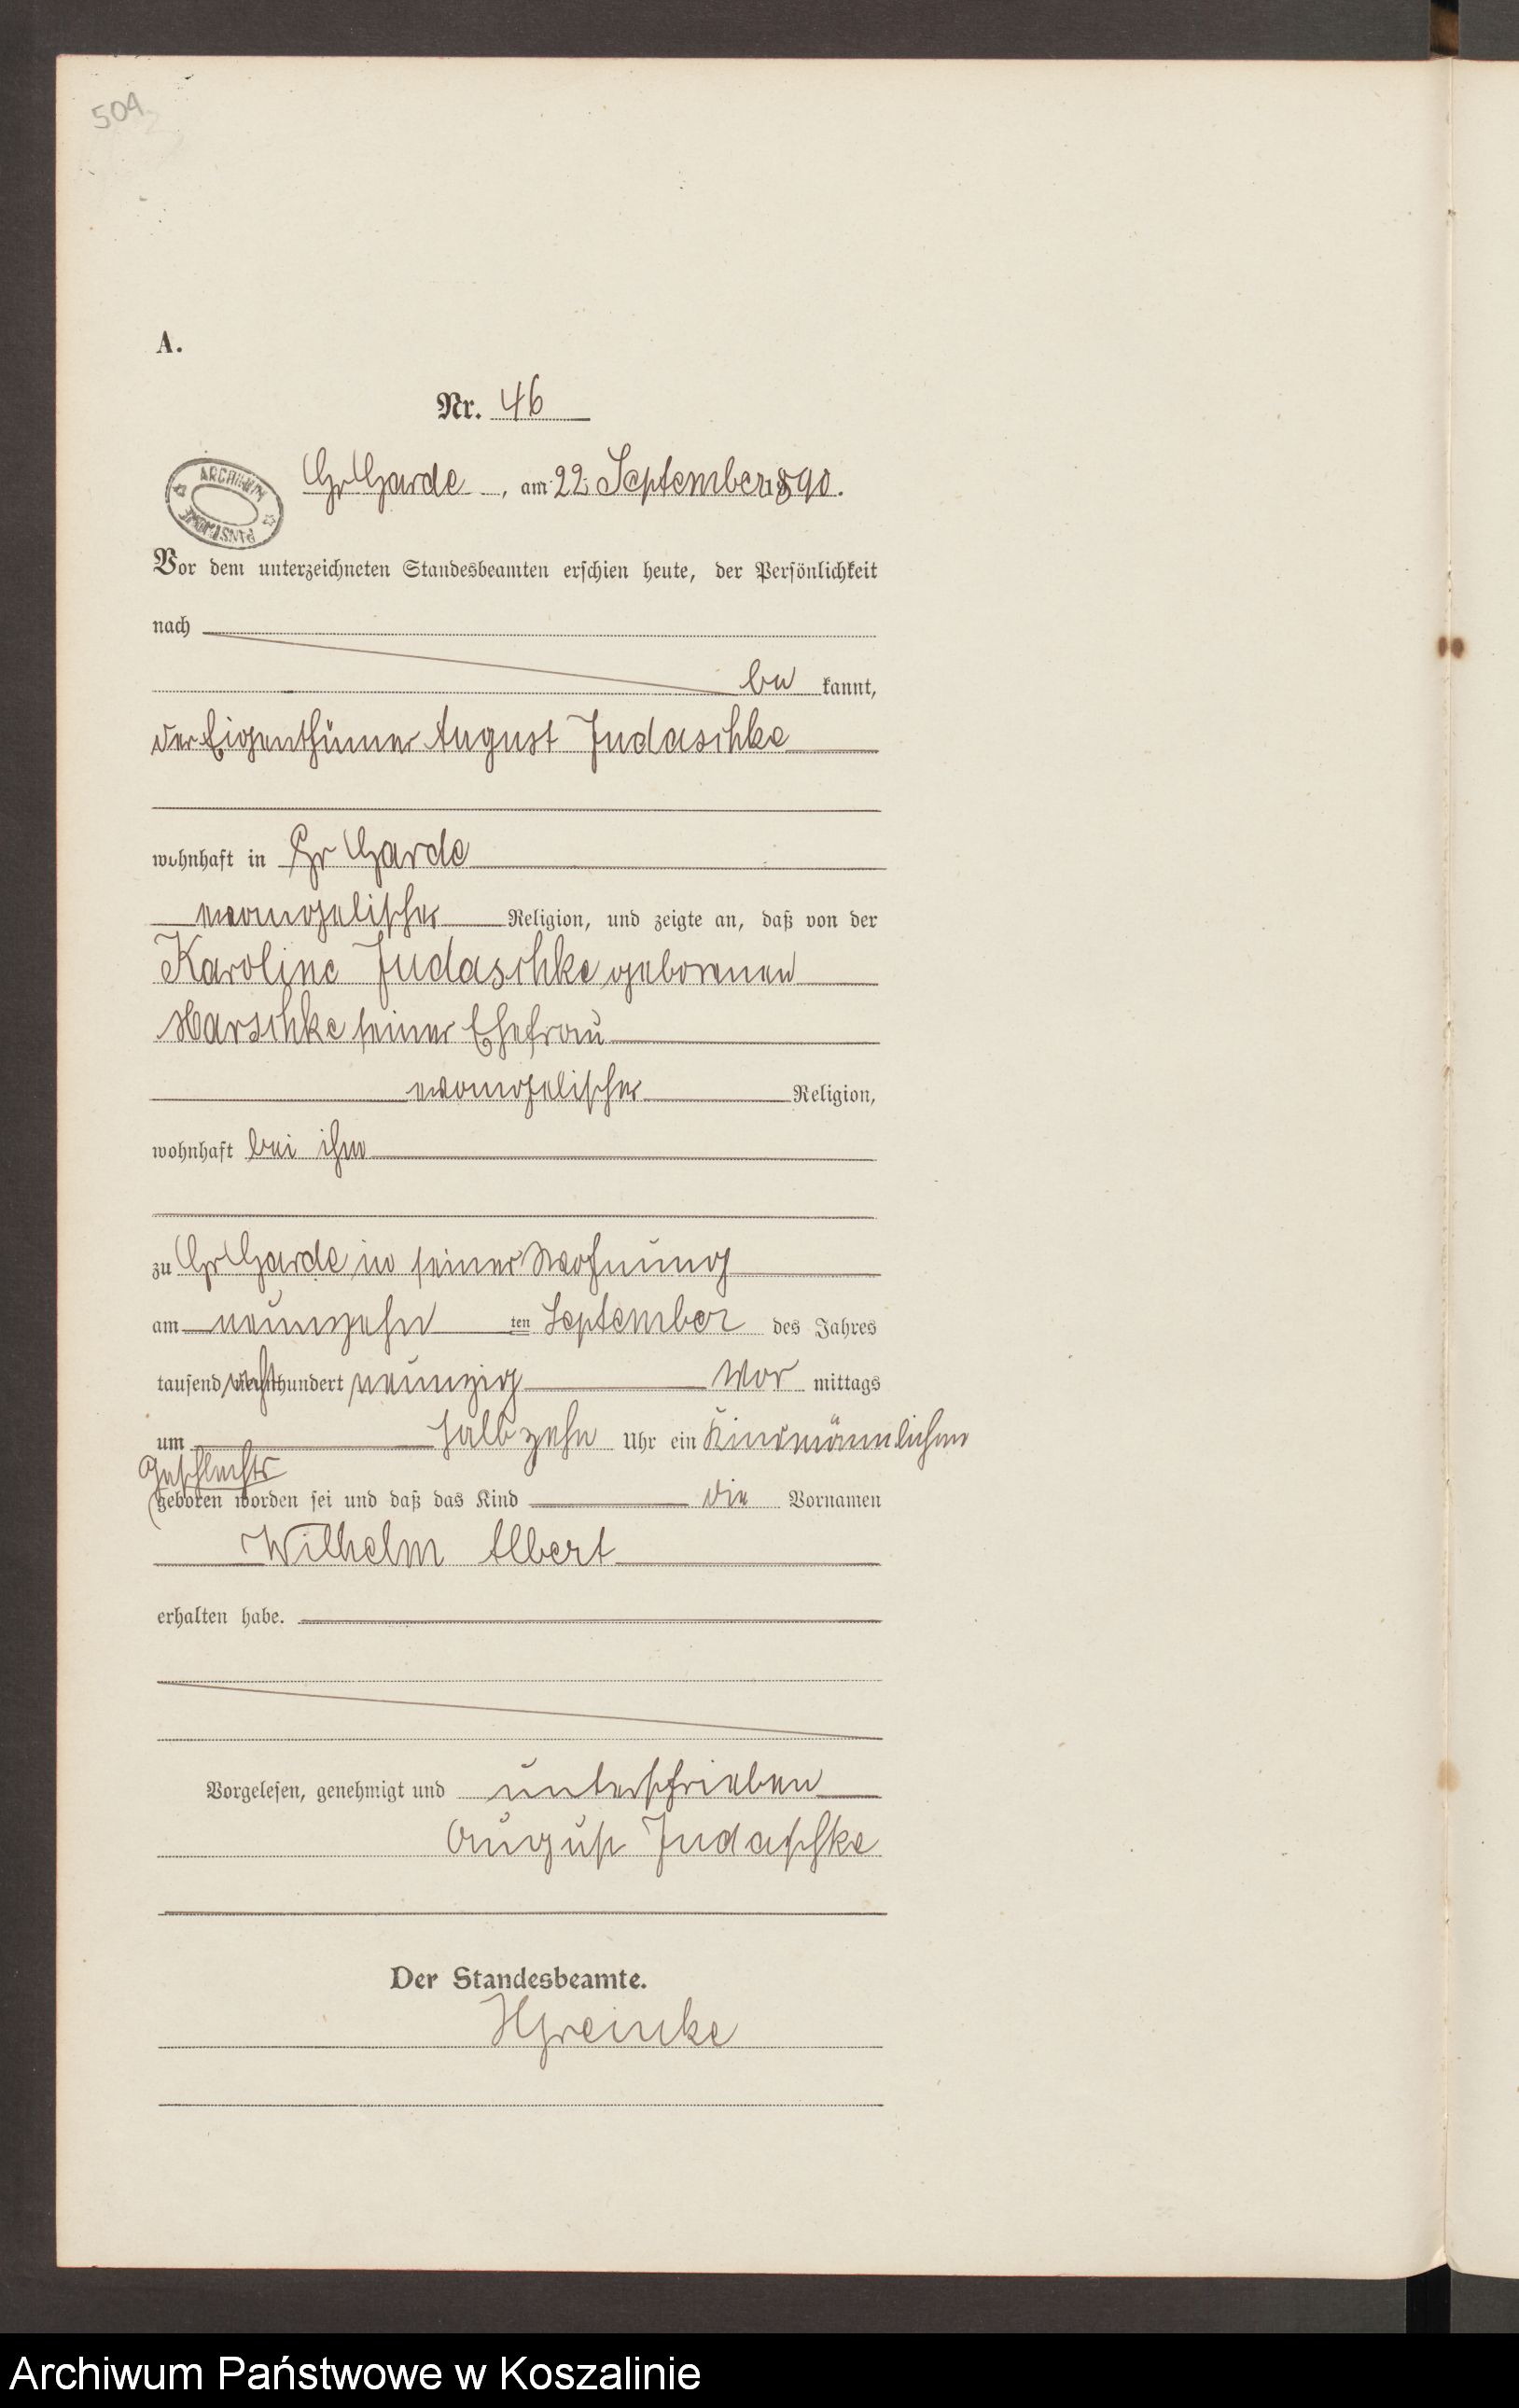 504
A.
Nr. 46
ARCHIWUM PAŃSTWOWE
Gr Garde, am 22. September 1890.
Vor dem unterzeichneten Standesbeamten erschien heute, der Persönlichkeit
nach
be kannt,
der Eigenthümer August Judaschke
wohnhaft in Gr Garde
evangelischer Religion, und zeigte an, daß von der
Karoline Judaschke geborenen
Harschke seiner Ehefrau
evangelischer Religion,
wohnhaft bei ihm
zu Gr Garde in seiner Wohnung
am neunzehn ten September des Jahres
tausend achthundert neunzig Vor mittags
um halb zehn Uhr ein Kind männlichen
Geschlechts
geboren worden sei und daß das Kind die Vornamen
Wilhelm Albert
erhalten habe.
Vorgelesen, genehmigt und unterschrieben
August Judaschke
Der Standesbeamte.
HGreinke
Archiwum Państwowe w Koszalinie